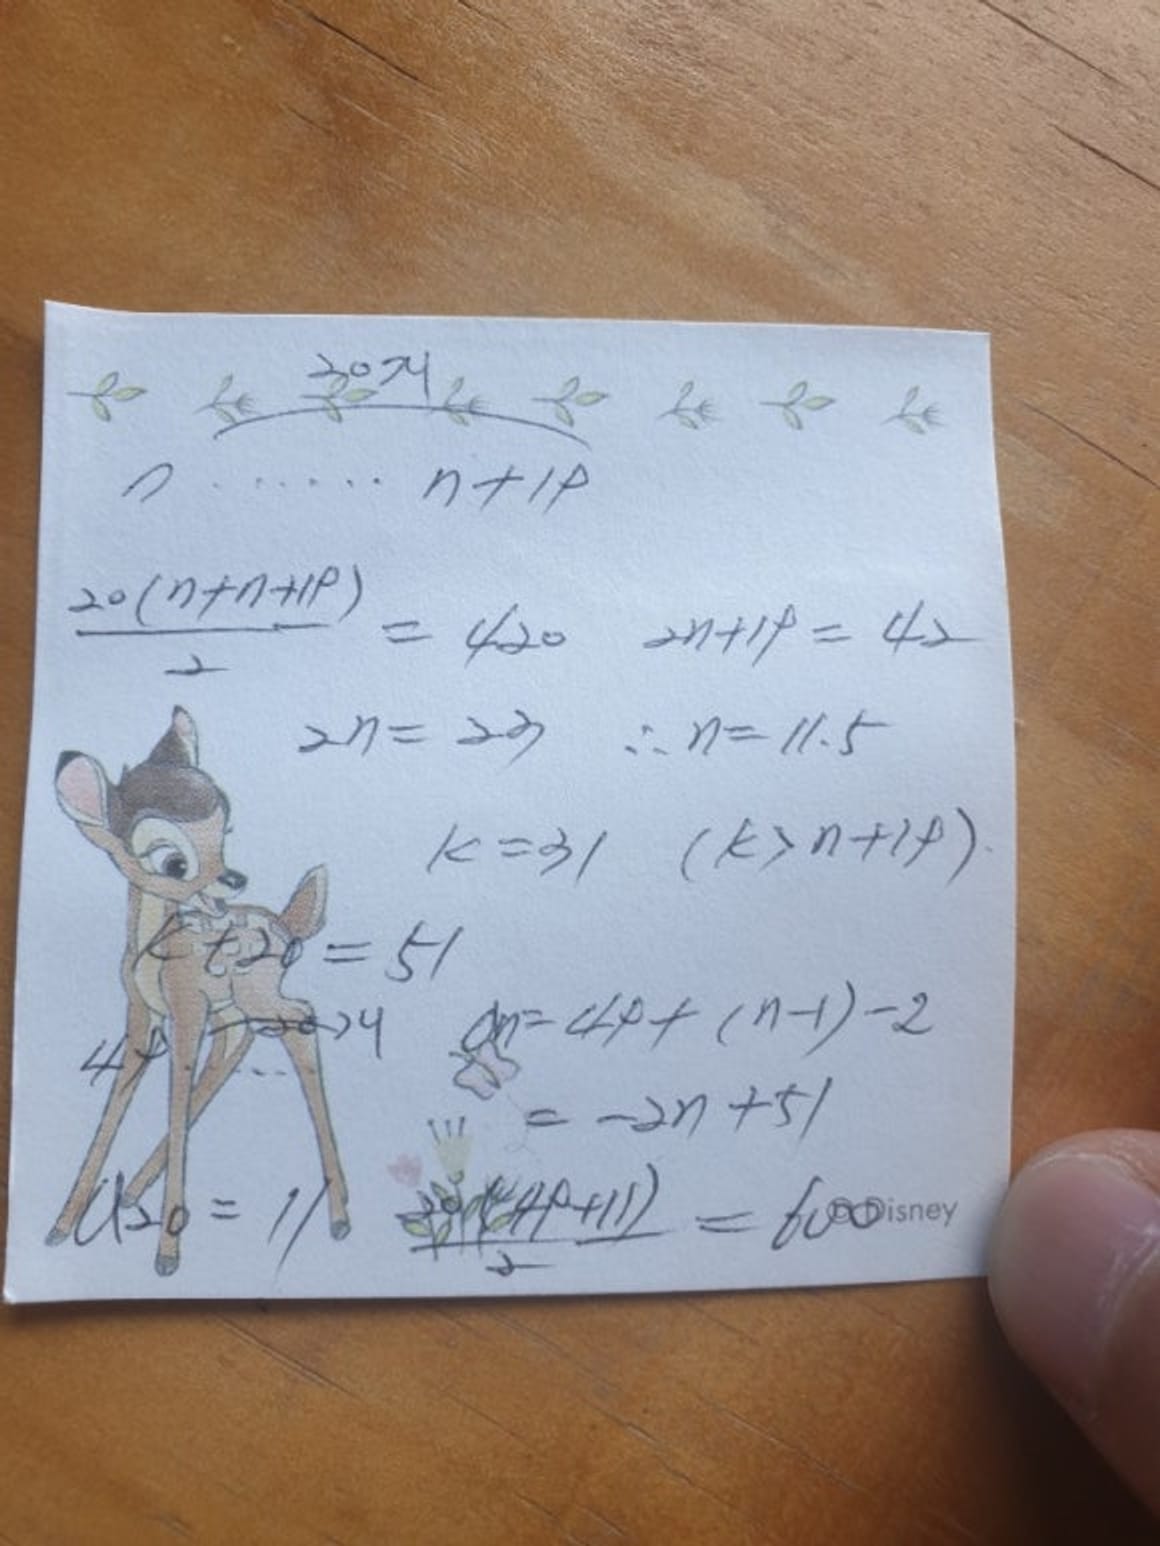 20개
n ....... n+19
20(n+n+19)/2 = 420 2n+19 = 42
2n = 23 ∴ n = 11.5
k = 31 (k > n+19).
k+20 = 51
20개 an = 49 + (n-1) -2
49 ......
= -2n +51
a20 = 11 20(49+11)/2 = 600
©Disney